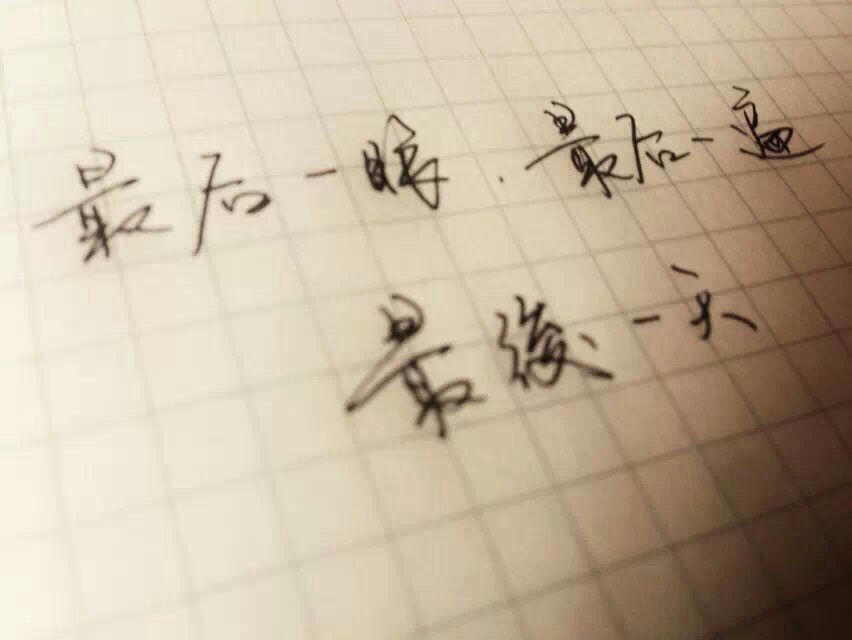 最后一眼.最后一遍
最後一天